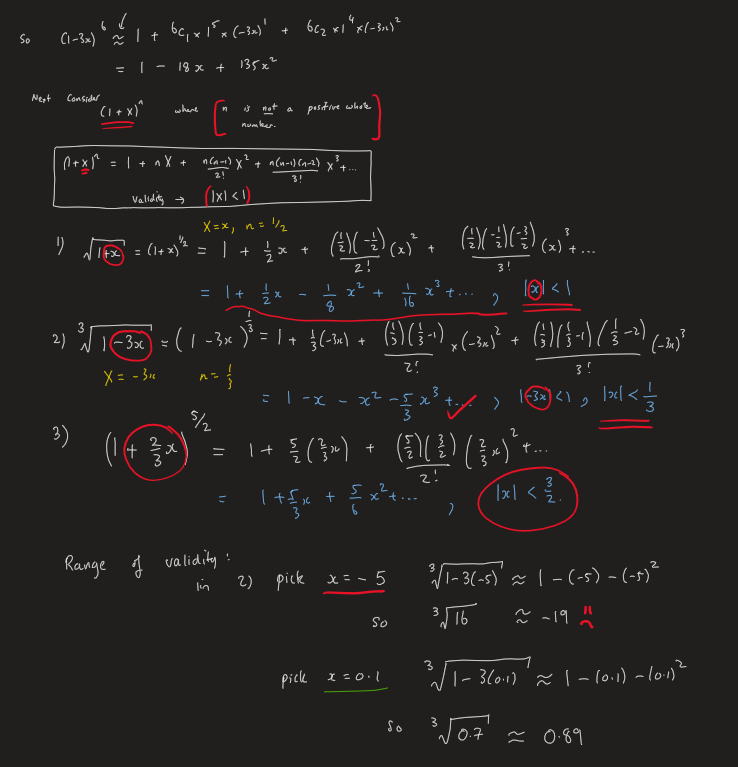 so (1-3x)⁶ ≈ 1 + 6C₁ × 1⁵ × (-3x)¹ + 6C₂ × 1⁴ × (-3x)²
= 1 - 18x + 135x²
Next Consider (1+x)ⁿ where [n is not a positive whole number.]
(1+x)ⁿ = 1 + nX + n(n-1)/2! X² + n(n-1)(n-2)/3! X³ + ...
validity → (|X| < 1)
X = x, n = 1/2
1) √(1+x) = (1+x)^(1/2) = 1 + 1/2 x + (1/2)(-1/2)/2! (x)² + (1/2)(-1/2)(-3/2)/3! (x)³ + ...
= 1 + 1/2 x - 1/8 x² + 1/16 x³ + ... , |x| < 1
2) ³√(1-3x) = (1-3x)^(1/3) = 1 + 1/3(-3x) + (1/3)(1/3-1)/2! × (-3x)² + (1/3)(1/3-1)(1/3-2)/3! (-3x)³
X = -3x n = 1/3
= 1 - x - x² - 5/3 x³ + ... ✓ , |-3x| < 1 , |x| < 1/3
3) (1 + 2/3 x)^(5/2) = 1 + 5/2 (2/3 x) + (5/2)(3/2)/2! (2/3 x)² + ...
= 1 + 5/3 x + 5/6 x² + ... , |x| < 3/2.
Range of validity:
in 2) pick x = -5 ³√(1-3(-5)) ≈ 1 - (-5) - (-5)²
so ³√16 ≈ -19
pick x = 0.1 ³√(1-3(0.1)) ≈ 1 - (0.1) - (0.1)²
so ³√0.7 ≈ 0.89